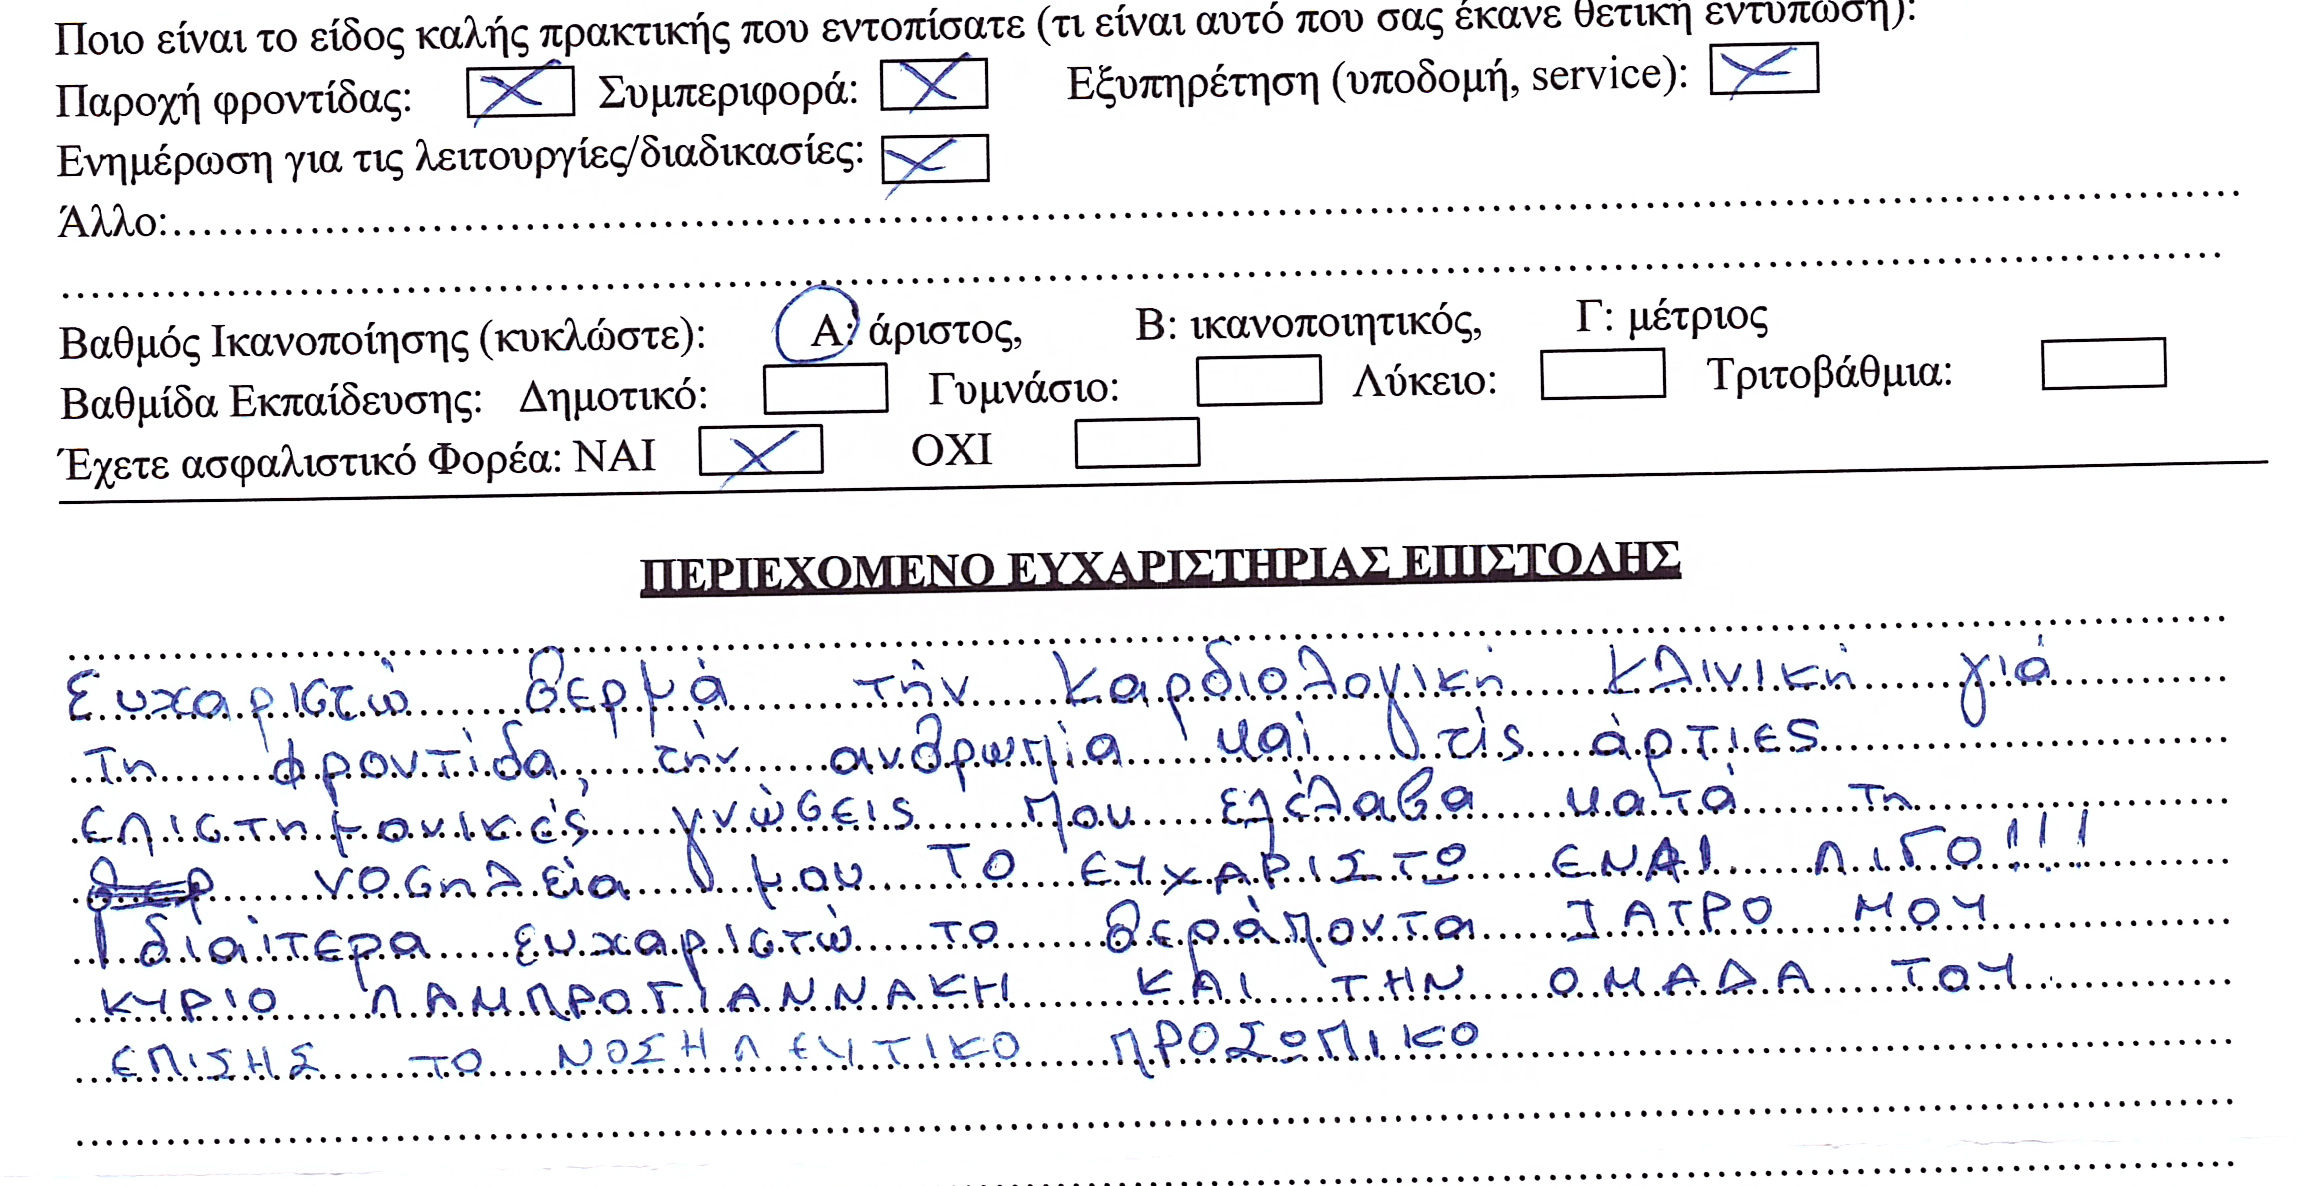 Ποιο είναι το είδος καλής πρακτικής που εντοπίσατε (τι είναι αυτό που σας έκανε θετική εντύπωση):
Παροχή φροντίδας: Συμπεριφορά: Εξυπηρέτηση (υποδομή, service):
Ενημέρωση για τις λειτουργίες/διαδικασίες:
Άλλο:
Βαθμός Ικανοποίησης (κυκλώστε): Α: άριστος, Β: ικανοποιητικός, Γ: μέτριος
Βαθμίδα Εκπαίδευσης: Δημοτικό: Γυμνάσιο: Λύκειο: Τριτοβάθμια:
Έχετε ασφαλιστικό Φορέα: ΝΑΙ ΟΧΙ
ΠΕΡΙΕΧΟΜΕΝΟ ΕΥΧΑΡΙΣΤΗΡΙΑΣ ΕΠΙΣΤΟΛΗΣ
Ευχαριστώ θερμά τήν Καρδιολογική Κλινική γιά
τη φροντίδα, τήν ανθρωπία καί τίς άρτιες
επιστημονικές γνώσεις που ελέλαβα κατά τη
νοσηλεία μου ΤΟ ΕΥΧΑΡΙΣΤΩ ΕΝΑΙ ΛΙΓΟ!!!
Ιδιαίτερα ευχαριστώ το θεράποντα ΙΑΤΡΟ ΜΟΥ
ΚΥΡΙΟ ΛΑΜΠΡΟΓΙΑΝΝΑΚΗ ΚΑΙ ΤΗΝ ΟΜΑΔΑ ΤΟΥ
ΕΠΙΣΗΣ ΤΟ ΝΟΣΗΛΕΥΤΙΚΟ ΠΡΟΣΩΠΙΚΟ